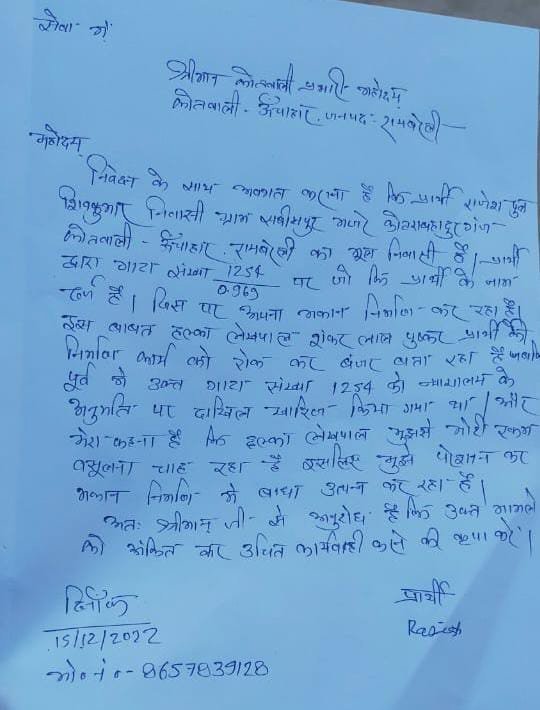 सेवा में
श्रीमान कोतवाली प्रभारी महोदय
कोतवाली - ऊँचाहार, जनपद - रायबरेली
महोदय
निवेदन के साथ अवगत कराना है कि प्रार्थी राजेश पुत्र
शिवकुमार निवासी ग्राम मजरे कोटराबहादुरगंज
कोतवाली - ऊँचाहार, रायबरेली का मूल निवासी है। प्रार्थी
द्वारा गाटा संख्या 1254/0.969 पर जो कि प्रार्थी के नाम
दर्ज है। जिस पर अपना मकान निर्माण कर रहा है।
इस बाबत हल्का लेखपाल शंकर लाल पुष्कर प्रार्थी की
निर्माण कार्य को रोक कर बंजर बता रहा है जबकि
पूर्व में उक्त गाटा संख्या 1254 को न्यायालय के
अनुमति पर दाखिल खारिज किया गया था। और
मेरा कहना है कि हल्का लेखपाल मुझसे मोटी रकम
वसूलना चाह रहा है इसलिए मुझे परेशान कर
मकान निर्माण में बाधा उत्पन्न कर रहा है।
अतः श्रीमान जी से अनुरोध है कि उक्त मामले
को अंकित कर उचित कार्यवाही करने की कृपा करें।
दिनाँक
15/12/2022
मो० नं० - 8657839128
प्रार्थी
Rajesh